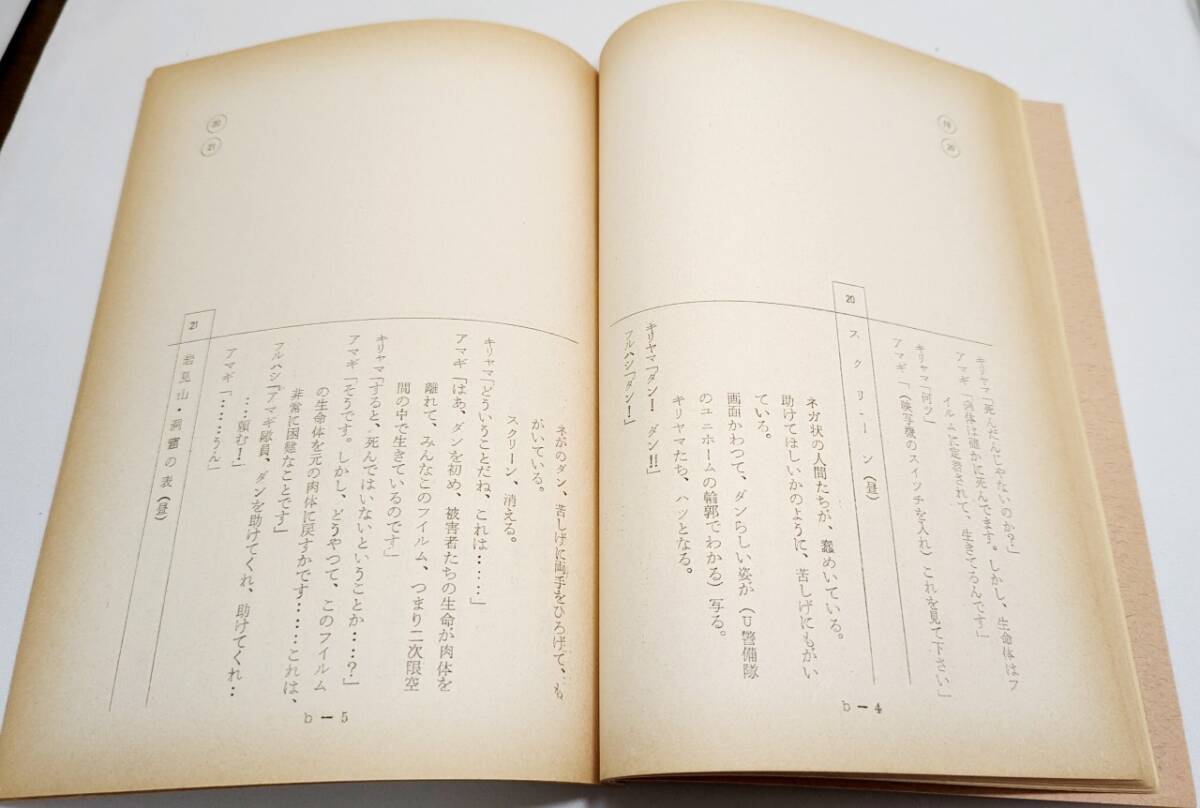 ⑲ ⑳
キリヤマ「死んだんじゃないのか?」
アマギ「肉体は確かに死んでます。しかし、生命体はフ
イルムに定着されて、生きてるんです」
キリヤマ「何ッ」
アマギ「(映写機のスイッチを入れ)これを見て下さい」
20 スクリーン(昼)
ネガ状の人間たちが、蠢めいている。
助けてほしいかのように、苦しげにもがい
ている。
画面かわつて、ダンらしい姿が(U警備隊
のユニホームの輪郭でわかる)写る。
キリヤマたち、ハッとなる。
キリヤマ「ダン! ダン!!」
フルハシ「ダン!」
b-4
⑳ ㉑
ネガのダン、苦しげに両手をひろげて、も
がいている。
スクリーン、消える。
キリヤマ「どういうことだね、これは……」
アマギ「はあ、ダンを初め、被害者たちの生命が肉体を
離れて、みんなこのフイルム、つまり二次限空
間の中で生きているのです」
キリヤマ「すると、死んではいないということか……?」
アマギ「そうです。しかし、どうやつて、このフイルム
の生命体を元の肉体に戻すかです……これは、
非常に困難なことです」
フルハシ「アマギ隊員、ダンを助けてくれ、助けてくれ‥
‥‥頼む!」
アマギ「……うん」
21 岩見山・洞窟の表(昼)
b-5